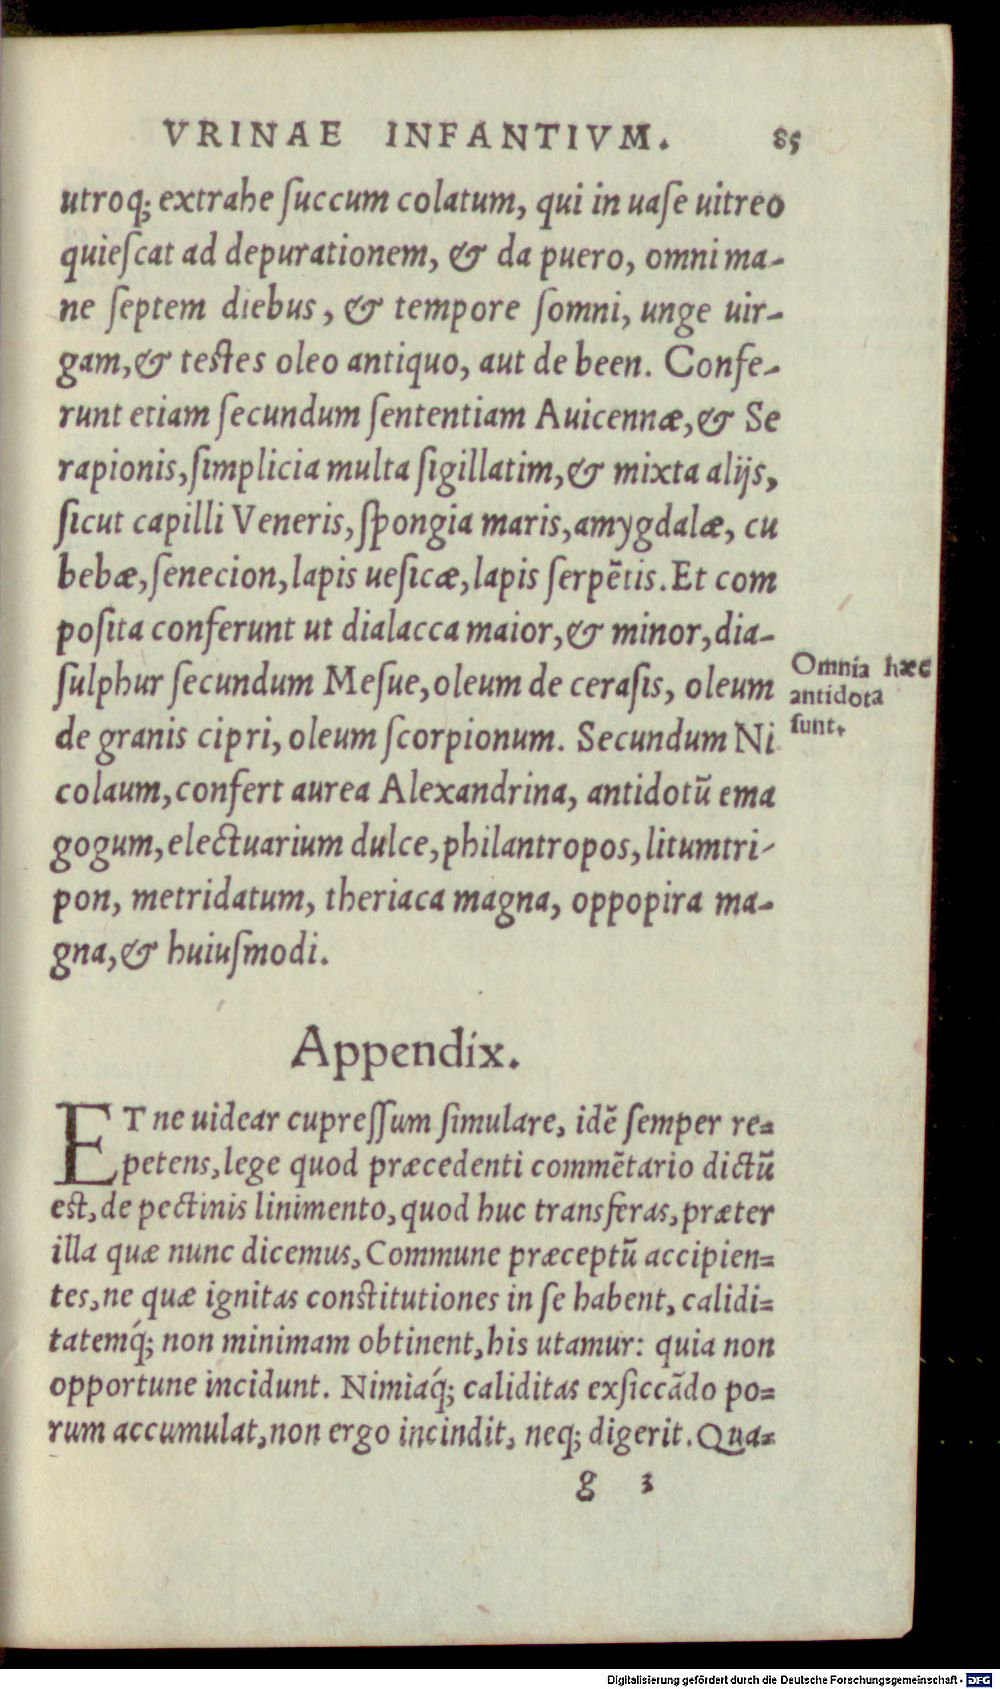 VRINAE INFANTIVM. 85
utroq; extrahe ſuccum colatum, qui in uaſe uitreo
quieſcat ad depurationem, & da puero, omni ma-
ne ſeptem diebus, & tempore ſomni, unge uir-
gam, & teſtes oleo antiquo, aut de been. Confe-
runt etiam ſecundum ſententiam Auicennæ, & Se
rapionis, ſimplicia multa ſigillatim, & mixta alijs,
ſicut capilli Veneris, ſpongia maris, amygdalæ, cu
bebæ, ſenecion, lapis ueſicæ, lapis ſerpẽtis. Et com
poſita conferunt ut dialacca maior, & minor, dia-
ſulphur ſecundum Meſue, oleum de ceraſis, oleum
de granis cipri, oleum ſcorpionum. Secundum Ni
colaum, confert aurea Alexandrina, antidotũ ema
gogum, electuarium dulce, philantropos, litumtri-
pon, metridatum, theriaca magna, oppopira ma-
gna, & huiuſmodi.
Omnia hæc
antidota
ſunt.
Appendix.
ET ne uidear cupreſſum ſimulare, idẽ ſemper re=
petens, lege quod præcedenti commẽtario dictũ
eſt, de pectinis linimento, quod huc transferas, præter
illa quæ nunc dicemus, Commune præceptũ accipien=
tes, ne quæ ignitas conſtitutiones in ſe habent, calidi=
tatemq́; non minimam obtinent, his utamur: quia non
opportune incidunt. Nimiaq́; caliditas exſiccãdo po=
rum accumulat, non ergo incindit, neq; digerit. Qua=
g 3
Digitalisierung gefördert durch die Deutsche Forschungsgemeinschaft - DFG